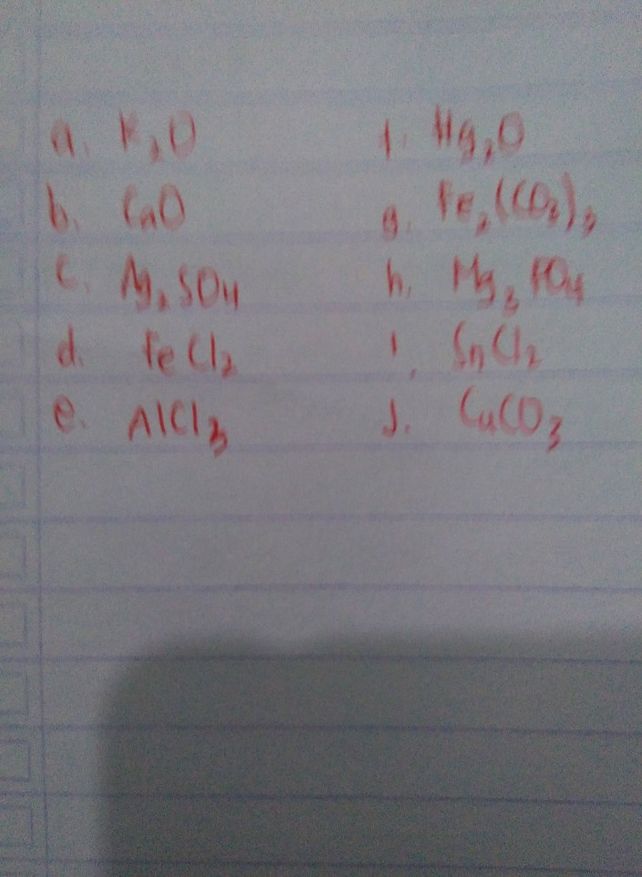 a. K₂O
b. CaO
c. Ag₂SO₄
d. FeCl₂
e. AlCl₃
f. Hg₂O
g. Fe₂(CO₃)₃
h. Mg₃PO₄
i. SnCl₂
j. CaCO₃